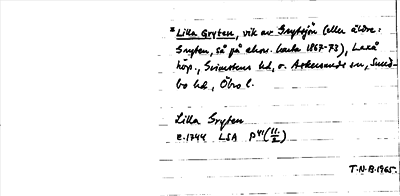 * Lilla Gryten, vik av Grytsjön (eller äldre:
Gryten, så på ekon. karta 1867-73), Laxå
köp., Grimstens hd, o. Askersunds sn, Sund-
bo hd, Öbro l.
Lilla Gryten
c.1744 LSA P41(11/2)
T.N.B.1965.